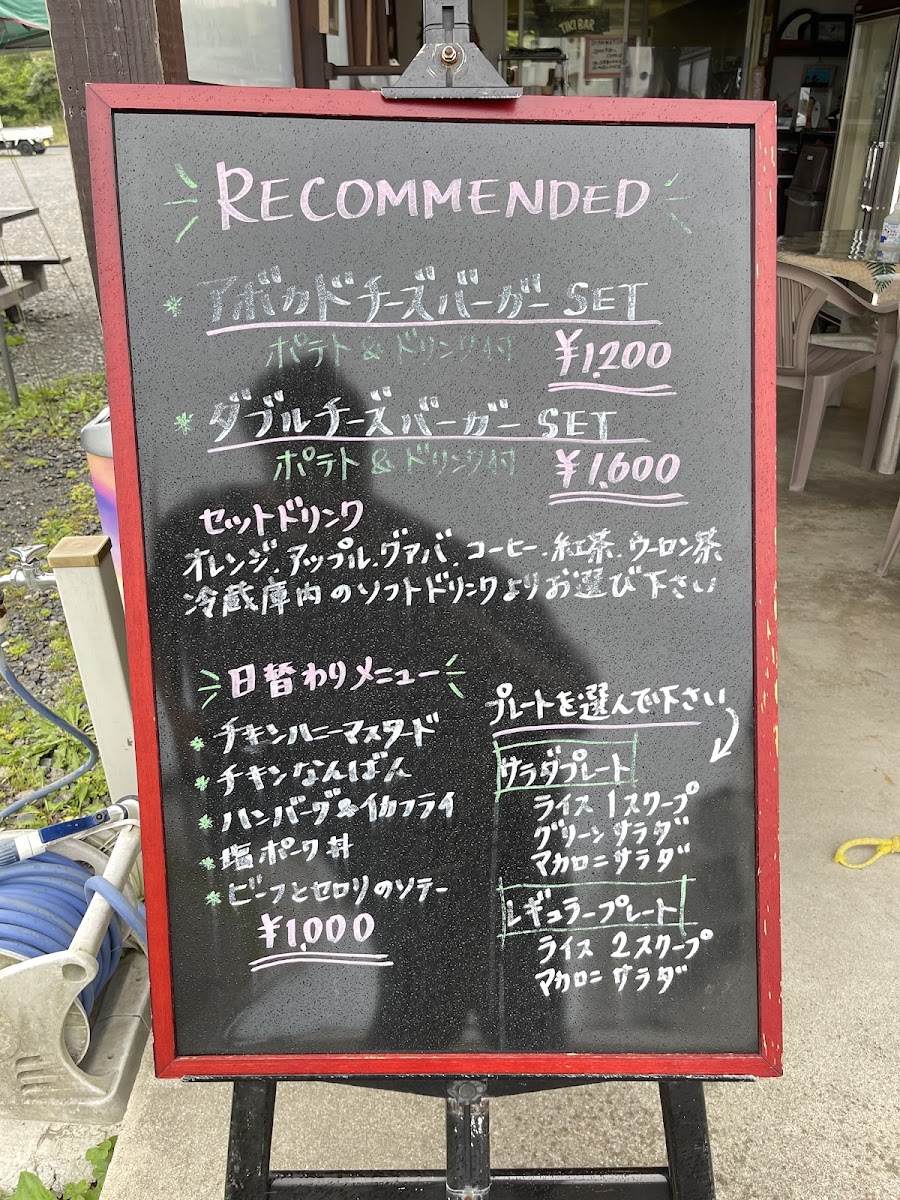 TIKI BAR
RECOMMENDED
アボカドチーズバーガー SET
ポテト & ドリンク付 ¥1,200
ダブルチーズバーガー SET
ポテト & ドリンク付 ¥1,600
セットドリンク
オレンジ.アップル.グァバ.コーヒー.紅茶.ウーロン茶
冷蔵庫内のソフトドリンクよりお選び下さい
日替わりメニュー
チキンハニーマスタード
チキンなんばん
ハンバーグ&イカフライ
塩ポーク丼
ビーフとセロリのソテー
¥1,000
プレートを選んで下さい
サラダプレート
ライス 1スクープ
グリーンサラダ
マカロニサラダ
レギュラープレート
ライス 2スクープ
マカロニサラダ